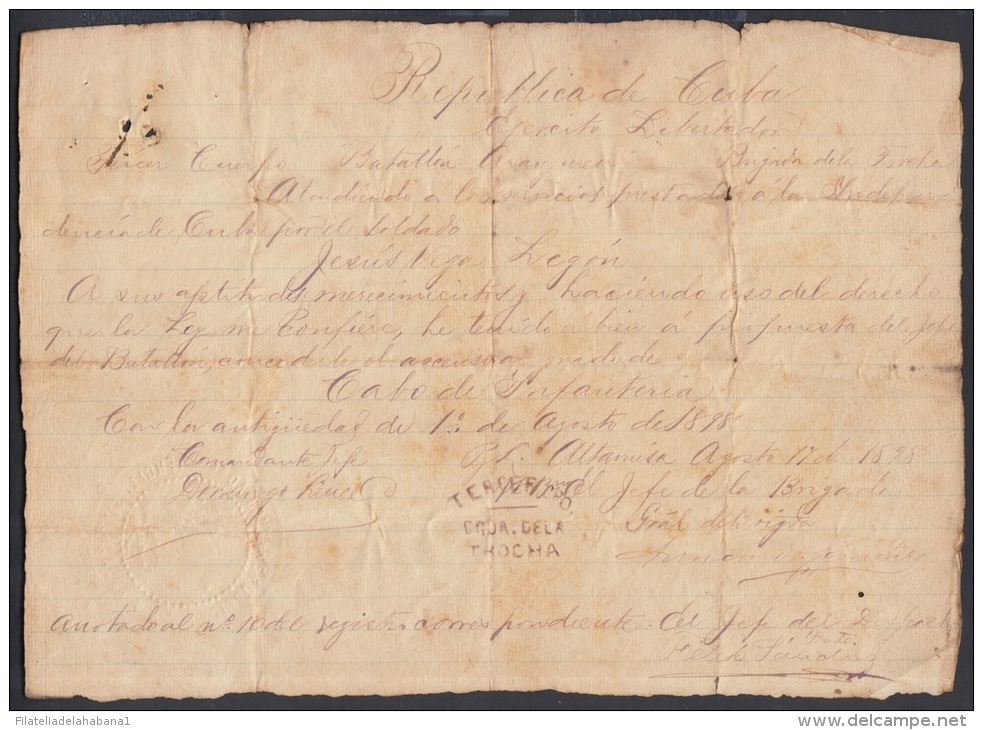 Republica de Cuba
Ejercito Libertador
Tercer Cuerpo "Batallón Brigada de la Trocha
Atendiendo a los servicios prestados a la Indepen-
dencia de Cuba por el soldado
Jesús Vega Legón
A sus aptitudes merecimientos y haciendo uso del derecho
que la Ley me Confiére, he tenido a bien á propuesta del Jefe
del Batallón, concederle el ascenso al grado de
Cabo de Infanteria
Con la antigüedad de 1º de Agosto de 1898
Comandante Jefe P. y L. Altamisa Agosto 17 de 1898
Domingo El Jefe de la Brigada
TERCER
Gral de Brigda
BRJA. DE LA
TROCHA
Armando
Anotado al nº 10 del registro correspondiente. El Jefe del Despach
Felix Sánchez
FilateliadelaHabana1
www.delcampe.net